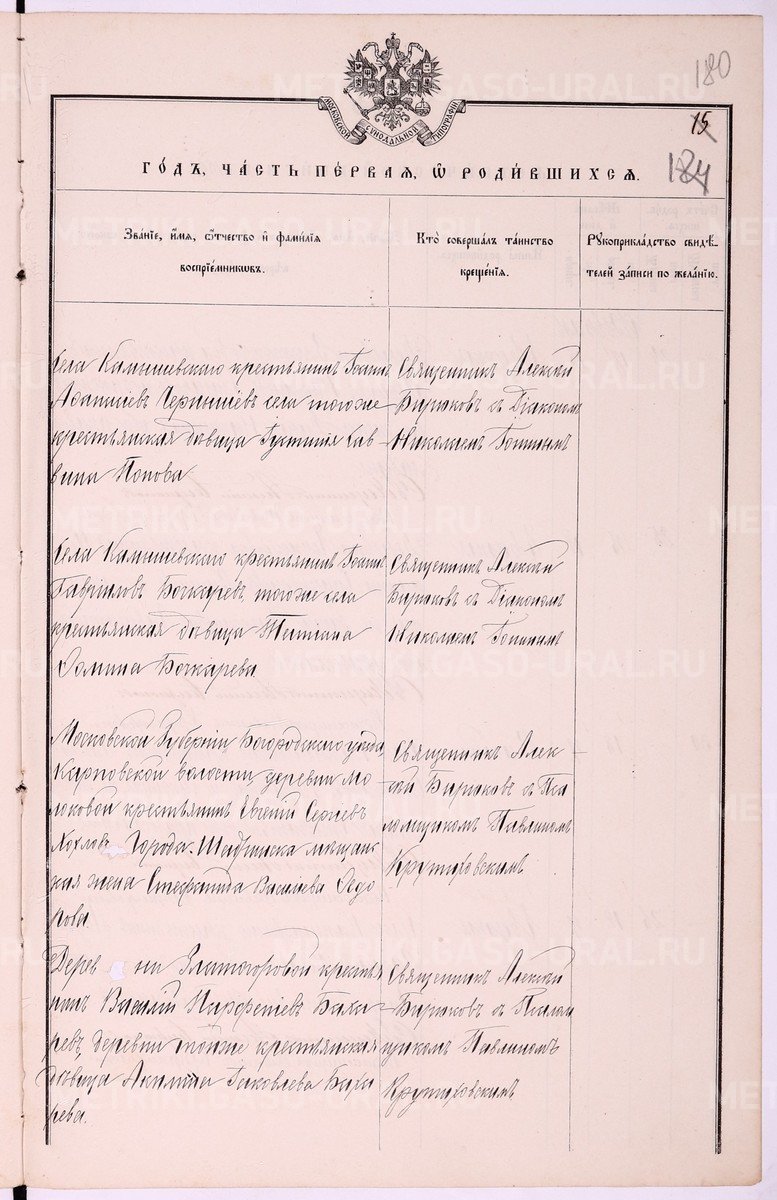 180
15
184
МОСКОВСКОЙ СѴНОДАЛЬНОЙ ТИПОГРАФІИ
ГО́ДЪ, ЧА́СТЬ ПЕ́РВАЯ, Ѿ РОДИ́ВШИХСЯ.
Зва́нїе, и҆́мя, ѻ҆́тчество и҆ фами́лїя
воспрїе́мникѡвъ.
Кто̀ соверша́лъ та́инство
креще́нїя.
Рꙋкоприкла́дство свидѣ́-
телей за́писи по жела́нїю.
Села Камышевскаго крестьянинъ Іоаннъ
Аѳанасіевъ Чернышевъ села того же
крестьянская дѣвица Іустинія Сав-
вина Попова
Священникъ Алексій
Бирюковъ съ Діакономъ
Николаемъ
Села Камышевскаго крестьянинъ Іоаннъ
Гавріиловъ Бочкаревъ, того же села
крестьянская дѣвица Татіана
Ѳомина Бочкарева.
Священникъ Алексій
Бирюковъ съ Діакономъ
Николаемъ
Московской Губерніи Богородскаго уѣзда,
Карповской волости, деревни Мо-
локовой крестьянинъ Евгеній Сергіевъ
Хохловъ. Города Шадринска мѣщан-
ская жена Стефанида Василіева Ѳедо
рова.
Священникъ Алек-
сій Бирюковъ съ Пса
ломщикомъ Павлиномъ
Крутиховскимъ
Дерев ни Златогоровой крестья
нинъ Василій Парѳеніевъ Баха-
ревъ, деревни тойже крестьянская
дѣвица Акилина Іаковлева Баха
рева.
Священникъ Алексій
Бирюковъ съ Псалом
щикомъ Павлиномъ
Крутиховскимъ
METRIKI.GASO-URAL.RU